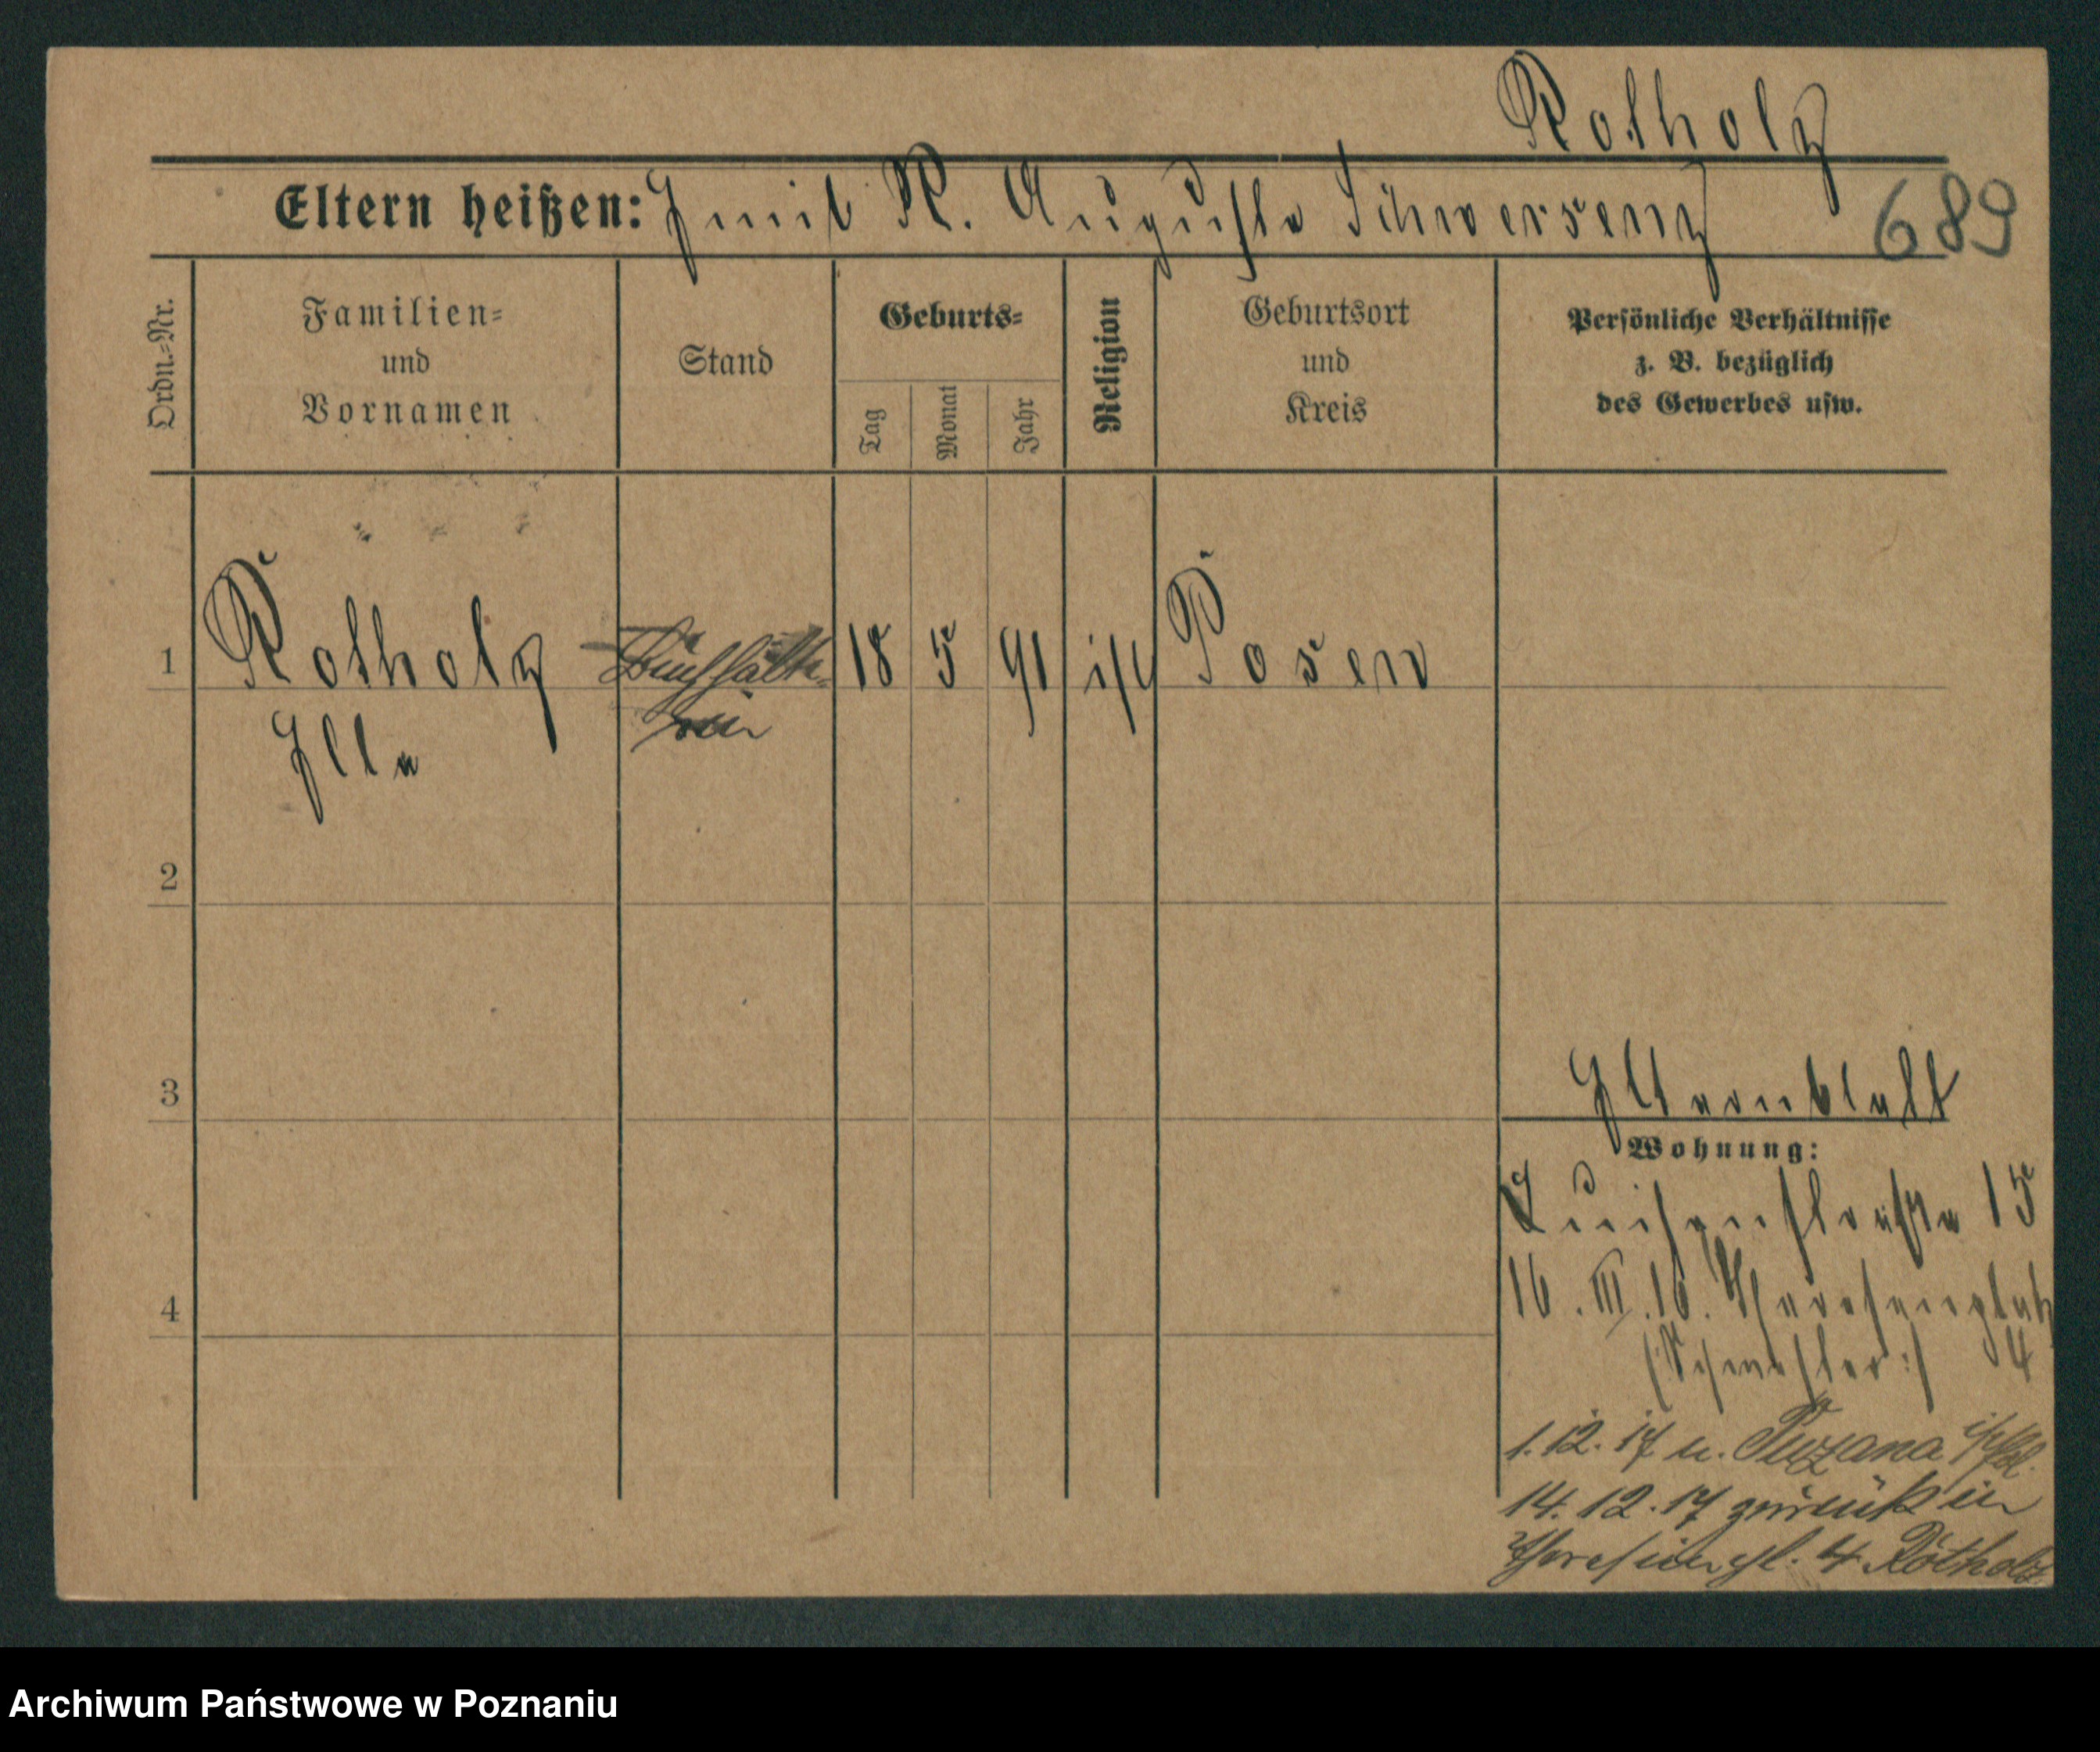 Rotholz
Eltern heißen: Emil R. Auguste Schwersenz 689
Ordn.=Nr.
Familien=
und
Vornamen
Stand
Geburts=
Tag
Monat
Jahr
Religion
Geburtsort
und
Kreis
Persönliche Verhältnisse
z. B. bezüglich
des Gewerbes usw.
1 Rotholz Buchhalte- 18 5 91 isr Posen
Ella rin
2
3
Elternblatt
Wohnung:
Luisenstraße 15
4
16. III. 16. Theresienplatz
(:Schwester:) 4
1. 12. 17 n.
14. 12. 17 zurück in
Theresienpl. 4 Rotholz
Archiwum Państwowe w Poznaniu